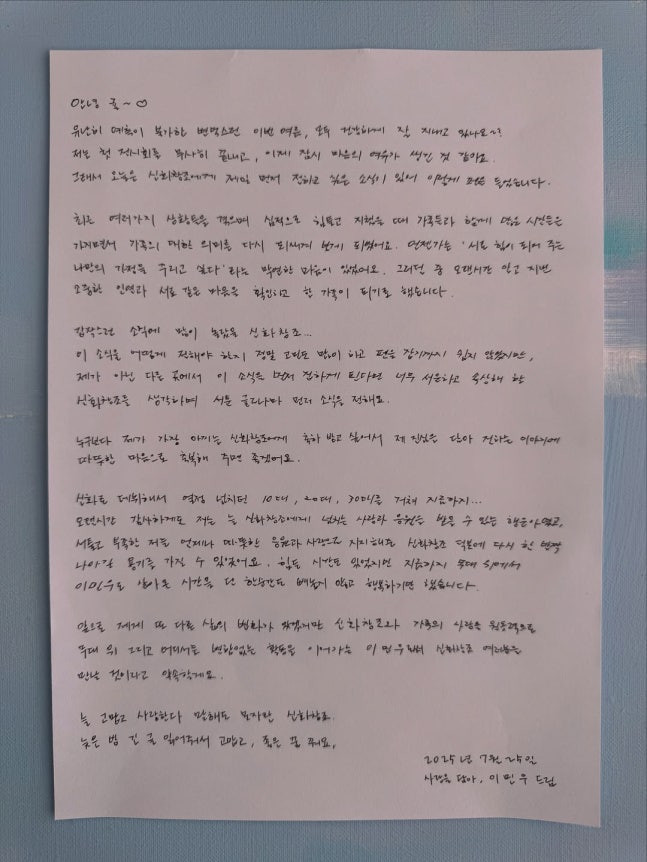 안녕 귤~♡
유난히 예측이 불가한 변덕스런 이번 여름, 모두 건강하게 잘 지내고 있나요~?
저는 첫 전시회를 무사히 끝내고, 이제 잠시 마음의 여유가 생긴 것 같아요.
그래서 오늘은 신화창조에게 제일 먼저 전하고 싶은 소식이 있어 이렇게 펜을 들었습니다.
최근 여러가지 상황들을 겪으며 심적으로 힘들고 지쳤을 때 가족들과 함께 많은 시간들을
가지면서 가족의 대한 의미를 다시 되새겨 보게 되었어요. 언젠가는 '서로 힘이 되어 주는
나만의 가정을 꾸리고 싶다' 라는 막연한 마음이 있었어요. 그러던 중 오랜시간 알고 지낸
소중한 인연과 서로 같은 마음을 확인하고 한 가족이 되기로 했습니다.
갑작스런 소식에 많이 놀랐을 신화창조...
이 소식을 어떻게 전해야 할지 정말 고민도 많이 하고 펜을 잡기까지 쉽지 않았지만,
제가 아닌 다른 곳에서 이 소식을 먼저 전하게 된다면 너무 서운하고 속상해 할
신화창조를 생각하며 서툰 글로나마 먼저 소식을 전해요.
누구보다 제가 가장 아끼는 신화창조에게 축하 받고 싶어서 제 진심을 담아 전하는 이야기에
따뜻한 마음으로 축복해 주면 좋겠어요.
신화로 데뷔해서 열정 넘치던 10대, 20대, 30대를 거쳐 지금까지...
오랜시간 감사하게도 저는 늘 신화창조에게 넘치는 사랑과 응원을 받을 수 있는 행운아였고,
서툴고 부족한 저를 언제나 따뜻한 응원과 사랑으로 지지해준 신화창조 덕분에 다시 한 번 꽉
나아갈 용기를 가질 수 있었어요. 힘든 시간도 있었지만 지금까지 무대 위에서
이민우로 살아온 시간을 단 한순간도 빼놓지 않고 행복하기만 했습니다.
앞으로 제게 또 다른 삶의 변화가 있겠지만 신화창조와 가족의 사랑을 원동력으로
무대 위 그리고 어디서든 변함없는 활동을 이어가는 이민우로써 신화창조 여러분을
만날 것이라고 약속할게요.
늘 고맙고 사랑한다 말해도 모자란 신화창조.
늦은 밤 긴 글 읽어줘서 고맙고, 좋은 꿈 꿔요.
2025년 7월 25일
사랑을 담아, 이민우 드림